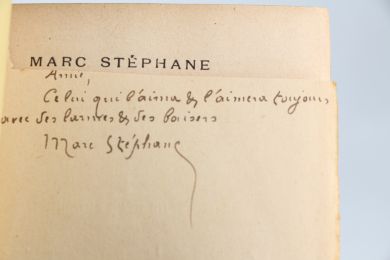 MARC STÉPHANE
Aimé,
Celui qui l'aima & l'aimera toujours
avec ses larmes & ses baisers
Marc Stéphane